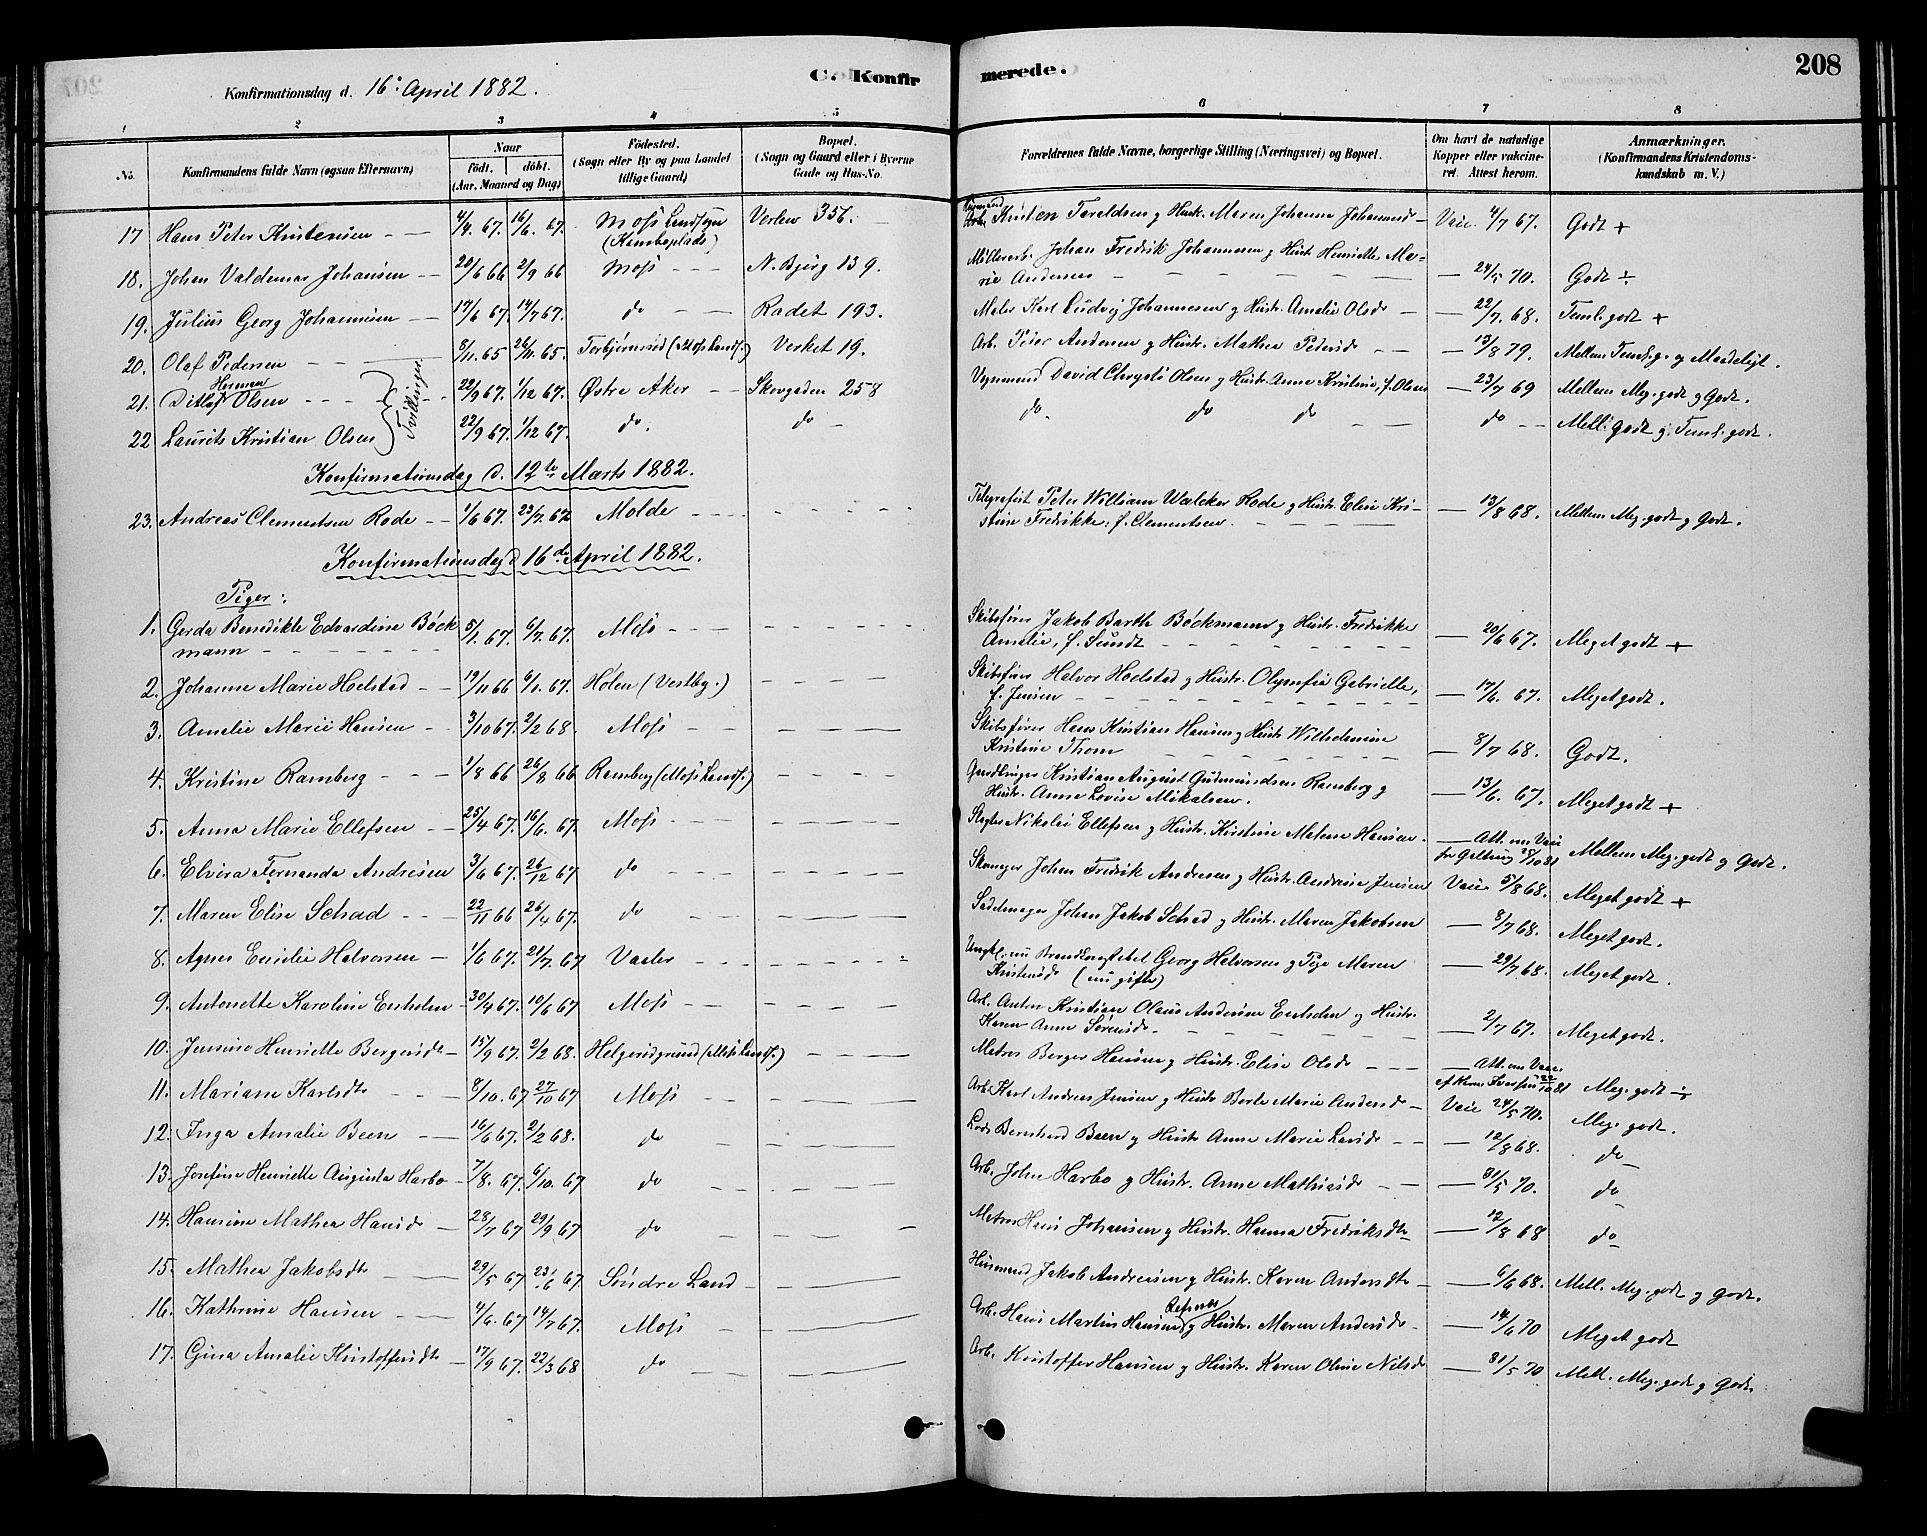 208
C. Konfir merede.
Konfirmationsdag d. 16: April 1882.
1 2 3 4 5 6 7 8
No. Konfirmandens fulde Navn (ogsaa Efternavn) Naar födt. döbt. (Aar, Maaned og Dag) Födested. (Sogn eller By og paa Landet tillige Gaard) Bopæl. (Sogn og Gaard eller i Byerne Gade og Hus-No. Forældrenes fulde Navne, borgerlige Stilling (Næringsvei) og Bopæl. Om havt de naturlige Kopper eller vakcineret. Attest herom. Anmærkninger. (Konfirmandens Kristendomskundskab m. V.)
17 Hans Peter Kristensen 4/4 67. 16/6 67. Moss Landsogn (Kamboplads) Vorlev 356. Arb. Kristen Taraldsen g Hust. Maren Johanne Johannesd Vaic. 4/7 67. Godt +
18. Johan Valdemar Johansen 20/6 66 2/9 66 Moss N. Bjerg 139. Möllerarb. Johan Fredrik Johannesen g Hust. Henriette Marie Andersen 24/5 70. Godt ÷
19. Julius Georg Johannesen 17/6 67. 14/7 67. do Radet 193. Maler Karl Ludvig Johannesen g Hustr. Amalie Olsdr 22/7 68. Teml. godt +
20. Olaf Pedersen 8/11 65 26/11 65. Torbjørnsrød (Moss Lands.) Verket 19. Arb. Peder Andersen g Hustr. Mathea Pedersdr 13/8 79. Mellem Teml. g. og Maadeligt.
21. Ditlef Herman Olsen Tvillinger 22/9 67. 1/12 67. Østre Aker Skovgaden 258 Vognmand David Chrysti Olsen g Hustr. Anne Kristine, f. Olsen 23/7 69 Mellem Meg. godt g Godt.
22 Laurits Kristian Olsen 22/9 67. 1/12 67. do. do do do do do Mell. godt g Teml. godt.
Konfirmationsdag d. 12te Marts 1882.
23. Andreas Clementsen Rode 1/6 67. 23/7 67 Molde Telegrafist Peter William Wælcker Rode g Hustr. Elise Kristine Fredrikke, f. Clementsen. 13/8 68. Mellem Meg. godt g Godt.
Konfirmationsdag d 16de April 1882.
Piger:
1. Gerda Benedikte Edvardine Böckmann 5/1 67. 6/7 67. Moss Skibsfører Jakob Barth Böckmann g Hustr. Fredrikke Amalie, f. Sundt 20/6 67. Meget godt +
2. Johanne Marie Hoelstad 19/11 66 6/1 67. Hølen (Vestby.) Skibsfører Halvor Hoelstad g Hustr. Olymfia Gabrielle, f. Jensen 17/6 67. Meget godt.
3. Amalie Marie Hansen 3/10 67. 2/2 68. Moss Skibsfører Hans Kristian Hansen g Hustr Wilhelmine Kristine Thom 8/7 68. Godt.
4. Kristine Ramberg 1/8 66 26/8 66 Ramberg (Moss Lands.) Kristian August Gudmundsen Ramberg g Hustr. Anne Lovise Mikalsen. 13/6. 67. Meget godt +
5. Anna Marie Ellefsen 25/4 67. 16/6. 67. Moss Slagter Nikolai Ellefsen g Hustr. Kirstine Matea Hansen. Att. om Vaic 10 81 Mellem Meg. godt g Godt.
6. Elvira Fernanda Andresen 3/6 67. 26/12 67 do Johan Fredrik Andresen g Hustr. Andrine Jensen Vaic 5/8 68. Meget godt +
7. Maren Elise Schad 22/11 66 26/4 67. do Sadelmager Johan Jakob Schad g Hustr. Maren Jakobsen 8/7 68. Meget godt.
8. Agnes Emilie Halvorsen 1/6 67. 21/7. 67 Vaaler Ungk. nu Georg Halvorsen g Pige Maren Kristensdr (nu gifte) 29/7 68. Meget godt.
9. Antonette Karoline Enholm 30/4 67. 10/6 67 Moss Arb. Anton Kristian Olaus Andersen Enholm g Hustr. Karen Anne Sørensdr 2/7 67. Meget godt.
10. Jensine Henriette Bergersdtr 15/9 67. 2/2 68. Helgerødgrund (Moss Lands.) Matros Berger Hansen g Hustr. Elise Olsdr Att. om Vaic. 10 81 Meg. godt ÷
11. Mariane Karlsdtr 8/10. 67 27/10 67 Moss Arb. Karl Andreas Jensen g Hustr Berte Marie Andersdr Vaic 24/5 70. Meg. godt.
12. Inga Amalie Been 16/6 67. 2/2 68. do Lods Bernhard Been g Hustr Anne Marie Larsdr 12/8 68. do
13. Josefine Henriette Augusta Harbo 7/8. 67. 6/10. 67 do Arb. John Harbo g Hustr. Anne Mathiasdr 31/5 70. do
14. Hansine Mathea Hansdr 28/7 67 29/9 67 do Matros Hans Johansen g Hustr. Hanna Fredriksdtr 12/8 68 do
15. Mathea Jakobsdtr 29/5 67 23/6 67 Söndre Land Husmand Jakob Andreasen g Hustr. Karen Andersdtr 6/6 68. Mell. Meg. godt g godt.
16. Kathrine Hansen 4/6. 67 14/7 67. Moss Arb. Hans Martin Hansen Refsnæs g Hustr. Maren Andersdr 14/6 70 Meget godt
17. Gina Amalie Kristoffersdtr 17/9 67. 22/3 68 do Arb. Kristoffer Hansen g Hustr. Karen Oline Nilsdr 31/5 70 Mell. Meg. godt g Godt.